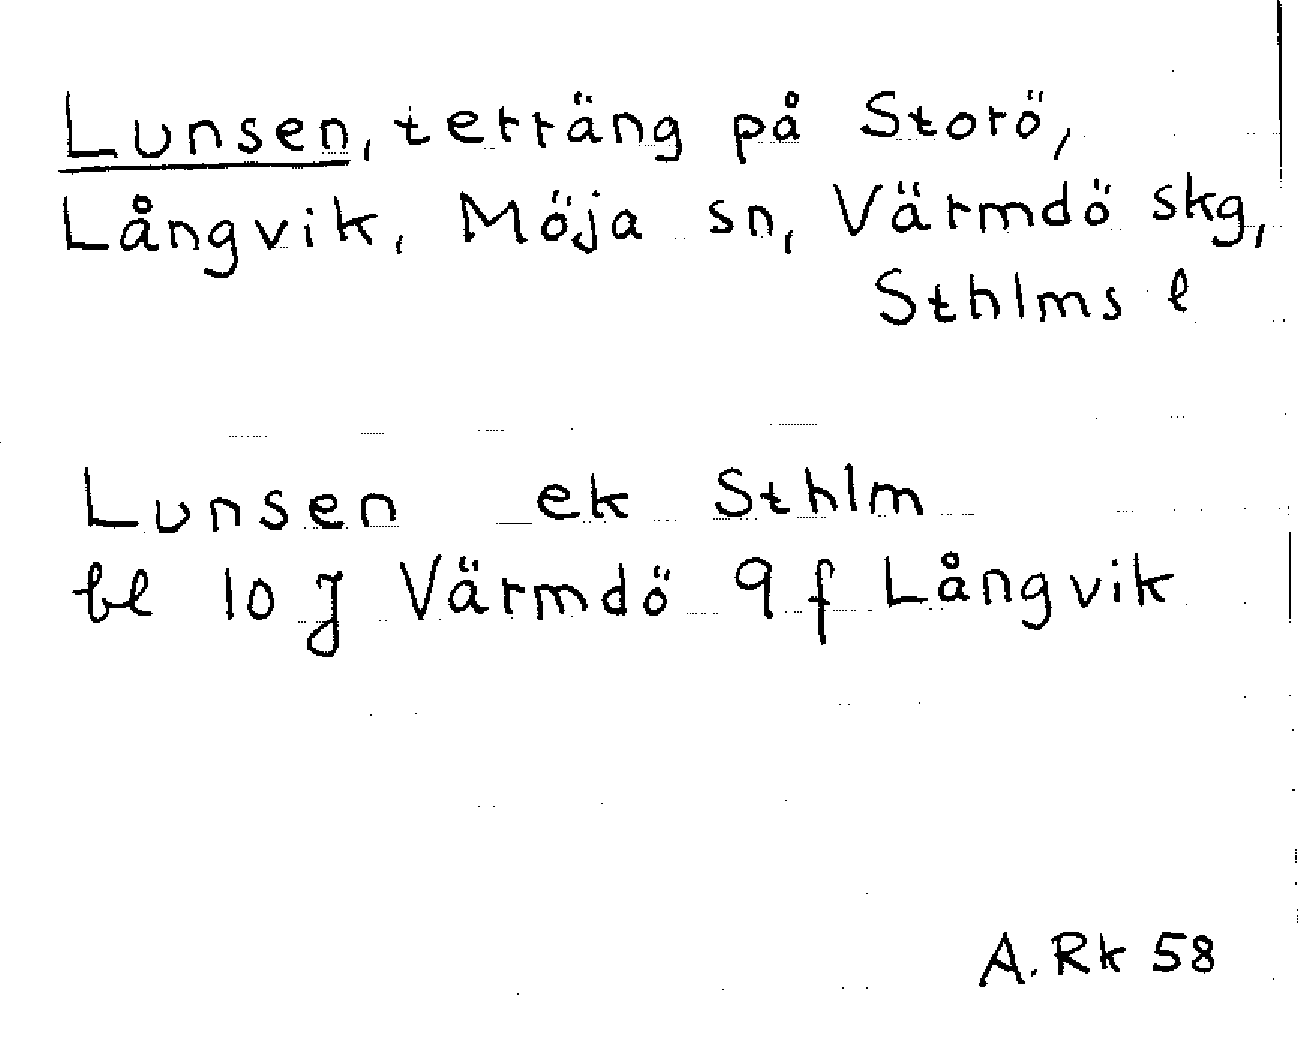 Lunsen, terräng på Storö,
Långvik, Möja sn, Värmdö skg,
Sthlms l
Lunsen ek Sthlm
bl 10 J Värmdö 9 f Långvik
A. Rk 58